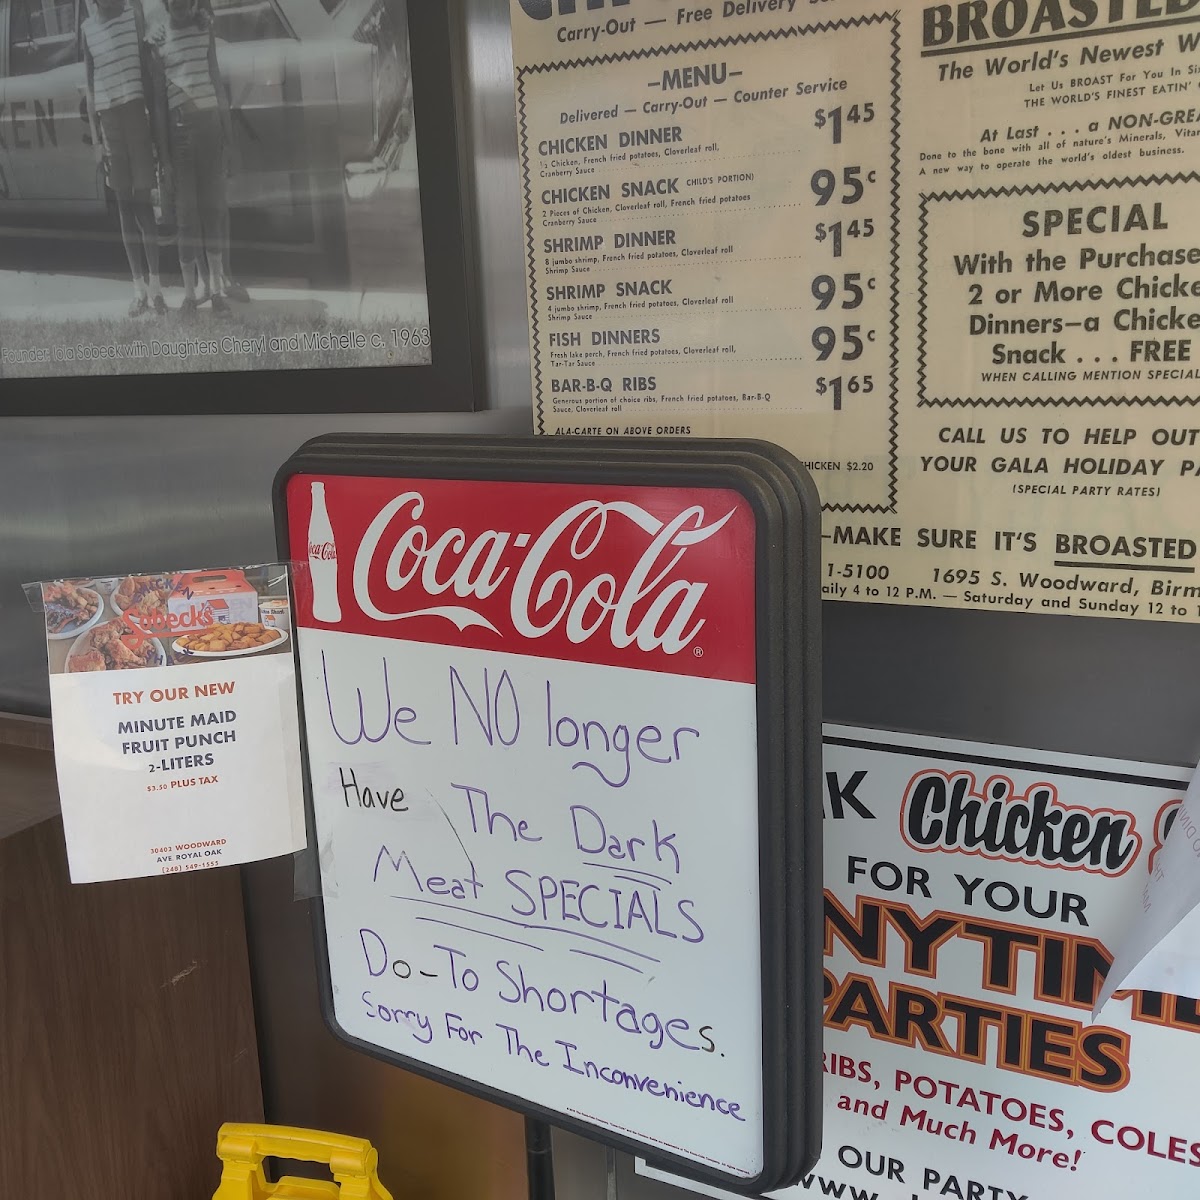 EN S K
Founder: Iola Sobeck with Daughters Cheryl and Michelle c. 1963
Carry-Out — Free Delivery
—MENU—
Delivered — Carry-Out — Counter Service
CHICKEN DINNER $1.45
½ Chicken, French fried potatoes, Cloverleaf roll,
Cranberry Sauce
CHICKEN SNACK (CHILD'S PORTION) 95c
2 Pieces of Chicken, Cloverleaf roll, French fried potatoes
Cranberry Sauce
SHRIMP DINNER $1.45
8 jumbo shrimp, French fried potatoes, Cloverleaf roll
Shrimp Sauce
SHRIMP SNACK 95c
4 jumbo shrimp, French fried potatoes, Cloverleaf roll
Shrimp Sauce
FISH DINNERS 95c
Fresh lake perch, French fried potatoes, Cloverleaf roll,
Tar-Tar Sauce
BAR-B-Q RIBS $1.65
Generous portion of choice ribs, French fried potatoes, Bar-B-Q
Sauce, Cloverleaf roll
ALA-CARTE ON ABOVE ORDERS
HICKEN $2.20
BROASTED
The World's Newest W
Let Us BROAST For You In Si
THE WORLD'S FINEST EATIN'
At Last . . . a NON-GREA
Done to the bone with all of nature's Minerals, Vita
A new way to operate the world's oldest business.
SPECIAL
With the Purchase
2 or More Chicke
Dinners—a Chicke
Snack . . . FREE
WHEN CALLING MENTION SPECIAL
CALL US TO HELP OUT
YOUR GALA HOLIDAY PA
(SPECIAL PARTY RATES)
—MAKE SURE IT'S BROASTED
1-5100 1695 S. Woodward, Birm
aily 4 to 12 P.M. — Saturday and Sunday 12 to
Coca-Cola
Coca-Cola®
We NO longer
Have The Dark
Meat SPECIALS
Do-To Shortages.
Sorry For The Inconvenience
Sobeck's
TRY OUR NEW
MINUTE MAID
FRUIT PUNCH
2-LITERS
$3.50 PLUS TAX
30402 WOODWARD
AVE ROYAL OAK
(248) 549-1555
K Chicken
FOR YOUR
NYTIME
PARTIES
RIBS, POTATOES, COLES
and Much More!
OUR PARTY
www.